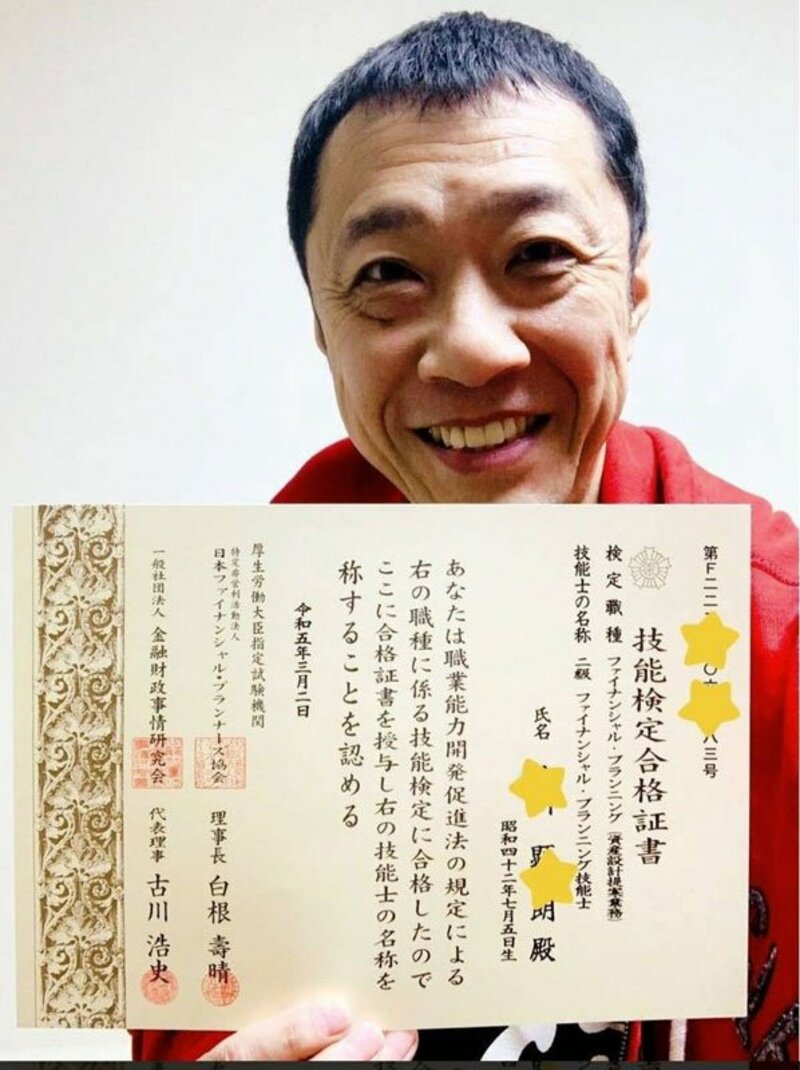 第F二二
〇六
八三号
技能検定合格証書
検定職種 ファイナンシャル・プランニング（資産設計提案業務）
技能士の名称 二級 ファイナンシャル・プランニング技能士
氏名
顕
朗殿
昭和四十二年七月五日生
あなたは職業能力開発促進法の規定による
右の職種に係る技能検定に合格したので
ここに合格証書を授与し右の技能士の名称を
称することを認める
令和五年三月二日
厚生労働大臣指定試験機関
特定非営利活動法人
日本ファイナンシャル・プランナーズ協会 理事長 白根壽晴
一般社団法人 金融財政事情研究会 代表理事 古川浩史